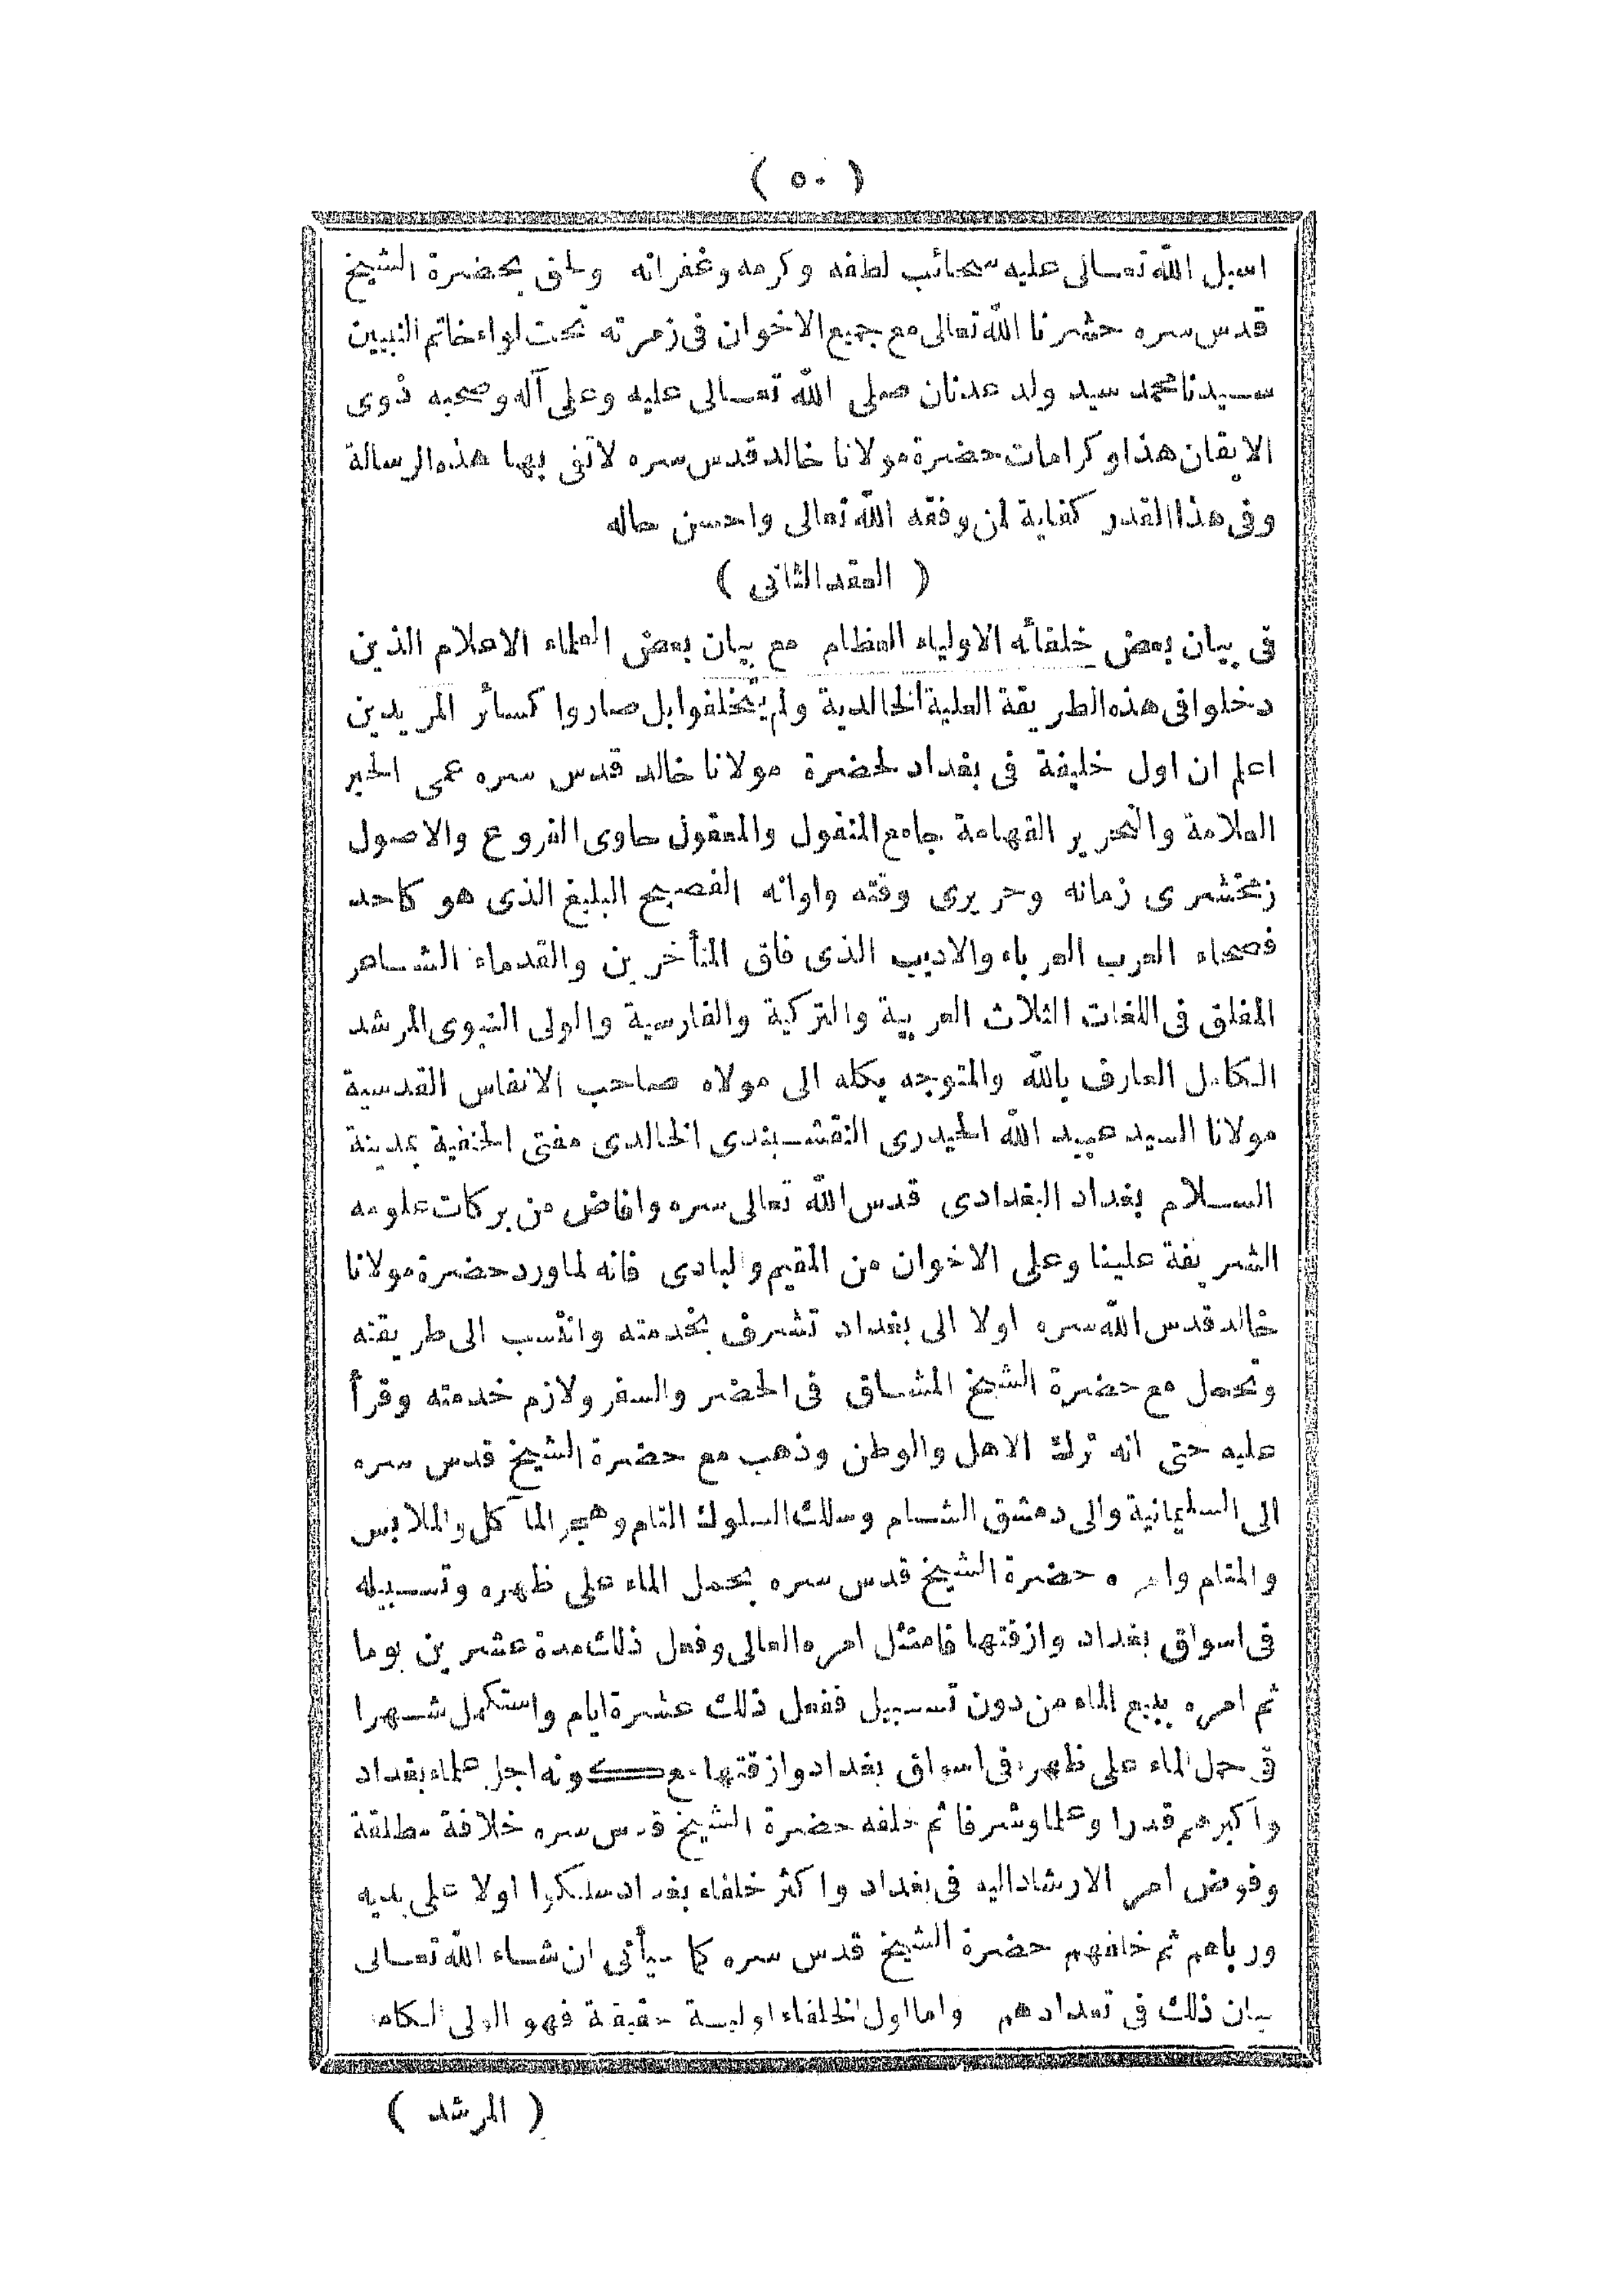 ( ٥٠ )
اسبل الله تعالى عليه سحائب لطفه وكرمه وغفرانه ولحق بحضرة الشيخ
قدس سره حشرنا الله تعالى مع جميع الاخوان فى زمرته تحت لواء خاتم النبيين
سيدنا محمد سيد ولد عدنان صلى الله تعالى عليه وعلى آله وصحبه ذوى
الايقان هذا وكرامات حضرة مولانا خالد قدس سره لاتفى بها هذه الرسالة
وفى هذا القدر كفاية لمن وفقه الله تعالى واحسن حاله
( العقد الثانى )
فى بيان بعض خلفائه الاولياء العظام مع بيان بعض العلماء الاعلام الذين
دخلوا فى هذه الطريقة العلية الخالدية ولم يتخلفوا بل صاروا كسائر المريدين
اعلم ان اول خليفة فى بغداد لحضرة مولانا خالد قدس سره عمى الحبر
العلامة والنحرير الفهامة جامع المنقول والمعقول حاوى الفروع والاصول
زمخشرى زمانه وحريرى وقته واوانه الفصيح البليغ الذى هو كاحد
فصحاء العرب العرباء والاديب الذى فاق المتأخرين والقدماء الشاعر
المفلق فى اللغات الثلاث العربية والتركية والفارسية والولى النبوى المرشد
الكامل العارف بالله والمتوجه بكله الى مولاه صاحب الانفاس القدسية
مولانا السيد عبيد الله الحيدرى النقشبندى الخالدى مفتى الحنفية بمدينة
السلام بغداد البغدادى قدس الله تعالى سره وافاض من بركات علومه
الشريفة علينا وعلى الاخوان من المقيم والبادى فانه لما ورد حضرة مولانا
خالد قدس الله سره اولا الى بغداد تشرف بخدمته وانتسب الى طريقته
وتحمل مع حضرة الشيخ المشاق فى الحضر والسفر ولازم خدمته وقرأ
عليه حتى انه ترك الاهل والوطن وذهب مع حضرة الشيخ قدس سره
الى السليمانية والى دمشق الشام وسلك السلوك التام وهجر المآكل والملابس
والمقام وامره حضرة الشيخ قدس سره بحمل الماء على ظهره وتسبيله
فى اسواق بغداد وازقتها فامتثل امره العالى وفعل ذلك مدة عشرين يوما
ثم امره ببيع الماء من دون تسبيل ففعل ذلك عشرة ايام واستكمل شهرا
فى حمل الماء على ظهره فى اسواق بغداد وازقتها مع كونه اجل علماء بغداد
واكبرهم قدرا وعلما وشرفا ثم خلفه حضرة الشيخ قدس سره خلافة مطلقة
وفوض امر الارشاد اليه فى بغداد واكثر خلفاء بغداد سلكوا اولا على يديه
ورباهم ثم خلفهم حضرة الشيخ قدس سره كما سيأتى ان شاء الله تعالى
بيان ذلك فى تعدادهم واما اول الخلفاء اولية حقيقة فهو الولى الكامل
( المرشد )